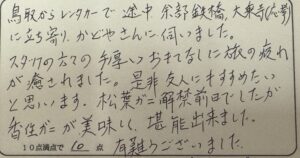 鳥取からレンタカーで途中、余部鉄橋、大乗寺(応挙)
に立ち寄り、かどやさんに伺いました。
スタッフの方々の手厚いおもてなしに旅の疲れ
が癒されました。是非友人にもすすめたい
と思います。松葉ガニ解禁前日でしたが
香住ガニが美味しく、堪能出来ました。
10点満点で 10 点 有難うございました。